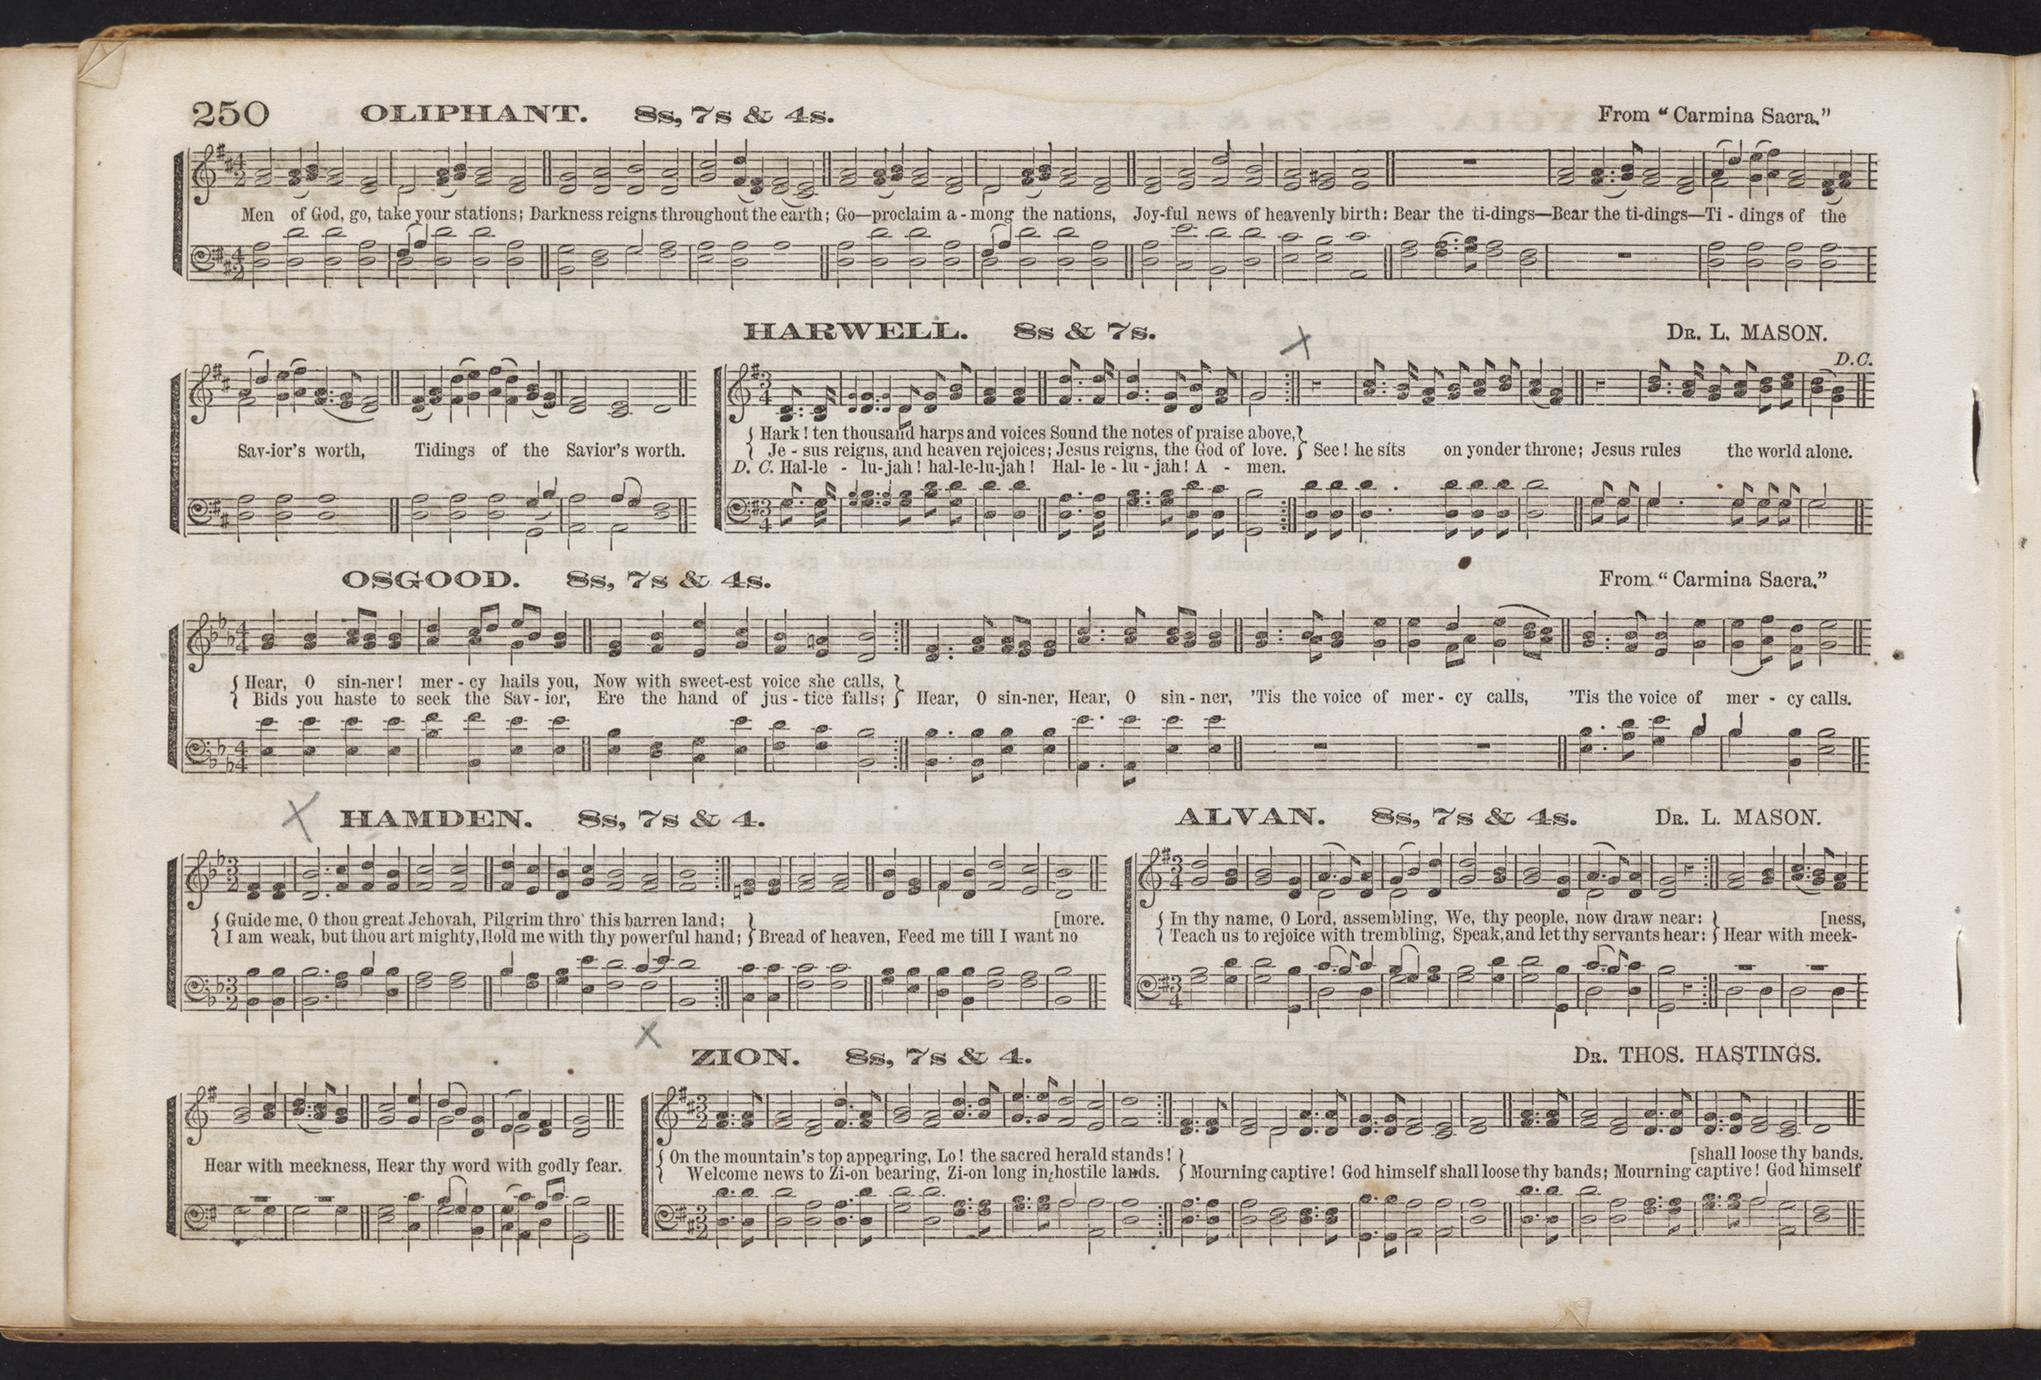 250 OLIPHANT. 8s, 7s & 4s. From “Carmina Sacra.”
Men of God, go, take your stations; Darkness reigns throughout the earth; Go—proclaim a - mong the nations, Joy-ful news of heavenly birth: Bear the ti-dings—Bear the ti-dings—Ti - dings of the
Sav-ior's worth, Tidings of the Savior's worth.
HARWELL. 8s & 7s. DR. L. MASON.
D.C.
Hark! ten thousand harps and voices Sound the notes of praise above,
Je - sus reigns, and heaven rejoices; Jesus reigns, the God of love. See! he sits on yonder throne; Jesus rules the world alone.
D. C. Hal-le - lu-jah! hal-le-lu-jah! Hal- le - lu - jah! A - men.
OSGOOD. 8s, 7s & 4s. From “Carmina Sacra.”
Hear, O sin-ner! mer - cy hails you, Now with sweet-est voice she calls,
Bids you haste to seek the Sav - ior, Ere the hand of jus - tice falls; Hear, O sin-ner, Hear, O sin - ner, 'Tis the voice of mer - cy calls, 'Tis the voice of mer - cy calls.
HAMDEN. 8s, 7s & 4.
Guide me, O thou great Jehovah, Pilgrim thro' this barren land; [more.
I am weak, but thou art mighty, Hold me with thy powerful hand; Bread of heaven, Feed me till I want no
ALVAN. 8s, 7s & 4s. DR. L. MASON.
In thy name, O Lord, assembling, We, thy people, now draw near: [ness,
Teach us to rejoice with trembling, Speak, and let thy servants hear: Hear with meek-
Hear with meekness, Hear thy word with godly fear.
ZION. 8s, 7s & 4. DR. THOS. HASTINGS.
On the mountain's top appearing, Lo! the sacred herald stands! [shall loose thy bands.
Welcome news to Zi-on bearing, Zi-on long in hostile lands. Mourning captive! God himself shall loose thy bands; Mourning captive! God himself